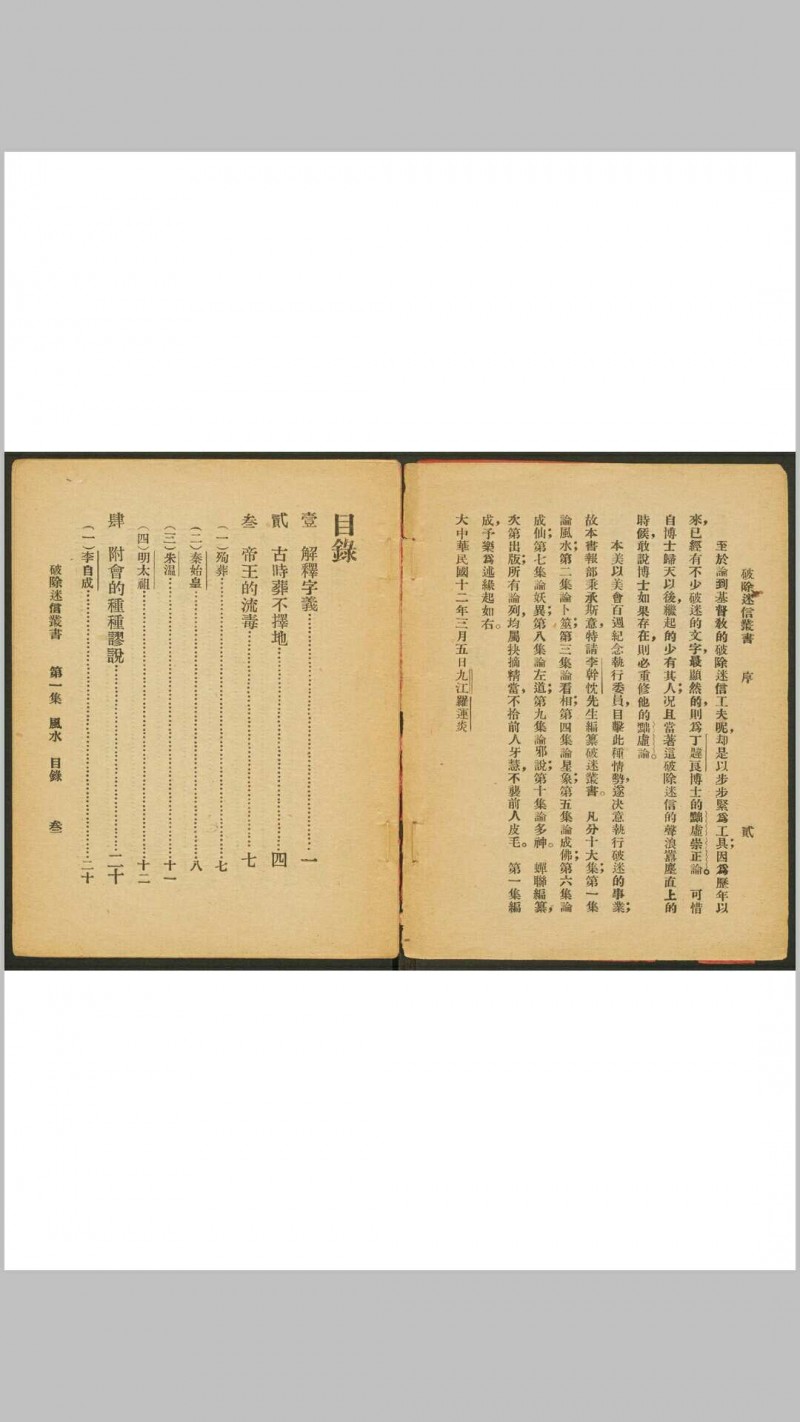 破除迷信叢書　序　貳
至於論到基督教的破除迷信工夫呢，却是以步步緊爲工具；因爲歷年以
來，已經有不少破迷的文字，最顯然的，則爲丁韙良博士的黜虛崇正論。可惜
自博士歸天以後，繼起的少有其人；况且當著這破除迷信的聲浪囂塵直上的
時候，敢說博士如果存在，則必重修他的黜虛論。
本美以美會百週紀念執行委員，目擊此種情勢，遂决意執行破迷的事業；
故本書報部秉承斯意，特請李幹忱先生編纂破迷叢書。凡分十大集；第一集
論風水；第二集論卜筮；第三集論看相；第四集論星象；第五集論成佛；第六集論
成仙；第七集論妖異；第八集論左道；第九集論邪說；第十集論多神。蟬聯編纂，
次第出版；所有論列，均屬抉摘精當，不拾前人牙慧，不襲前人皮毛。第一集編
成，予樂爲述緣起如右。
大中華民國十二年三月五日九江羅運炎
目錄
壹　解釋字義……一
貳　古時葬不擇地……四
叁　帝王的流毒……七
（一）殉葬……七
（二）秦始皇……八
（三）朱溫……十一
（四）明太祖……十二
肆　附會的種種謬說……二十
（一）李自成……二十
破除迷信叢書　第一集　風水　目錄　叁